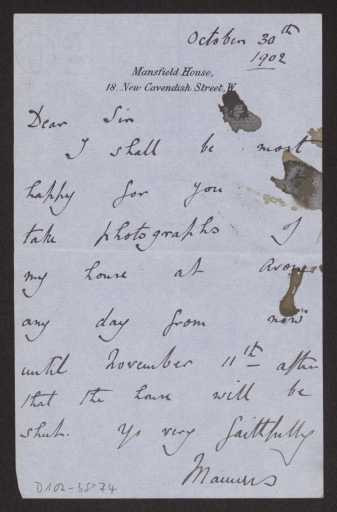 October 30th
1902
Mansfield House,
18, New Cavendish Street, W.
Dear Sir
I shall be most
happy for you
take photographs of
my house at Avon
any day from now
until November 11th after
that the house will be
shut. Yrs very faithfully
Manners
D102-58